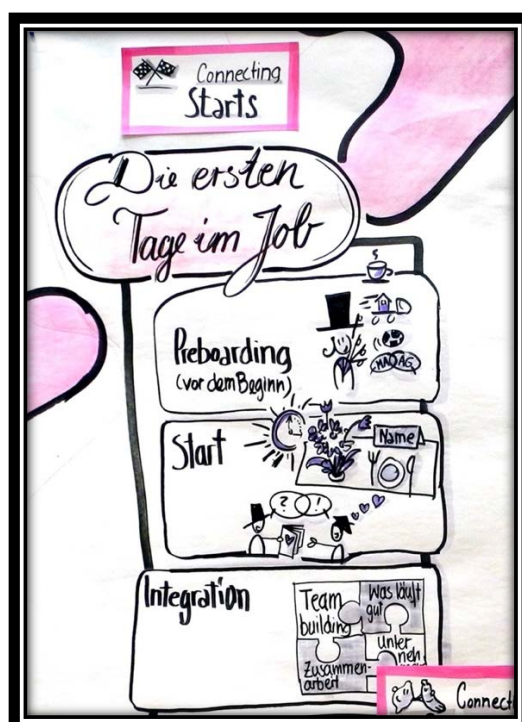 Connecting
Starts
Die ersten
Tage im Job
Preboarding
(vor dem Beginn)
Start
Name
?
!
Integration
Team
building
Was läuft
gut
Zusammen-
arbeit
unter
neh
Connect